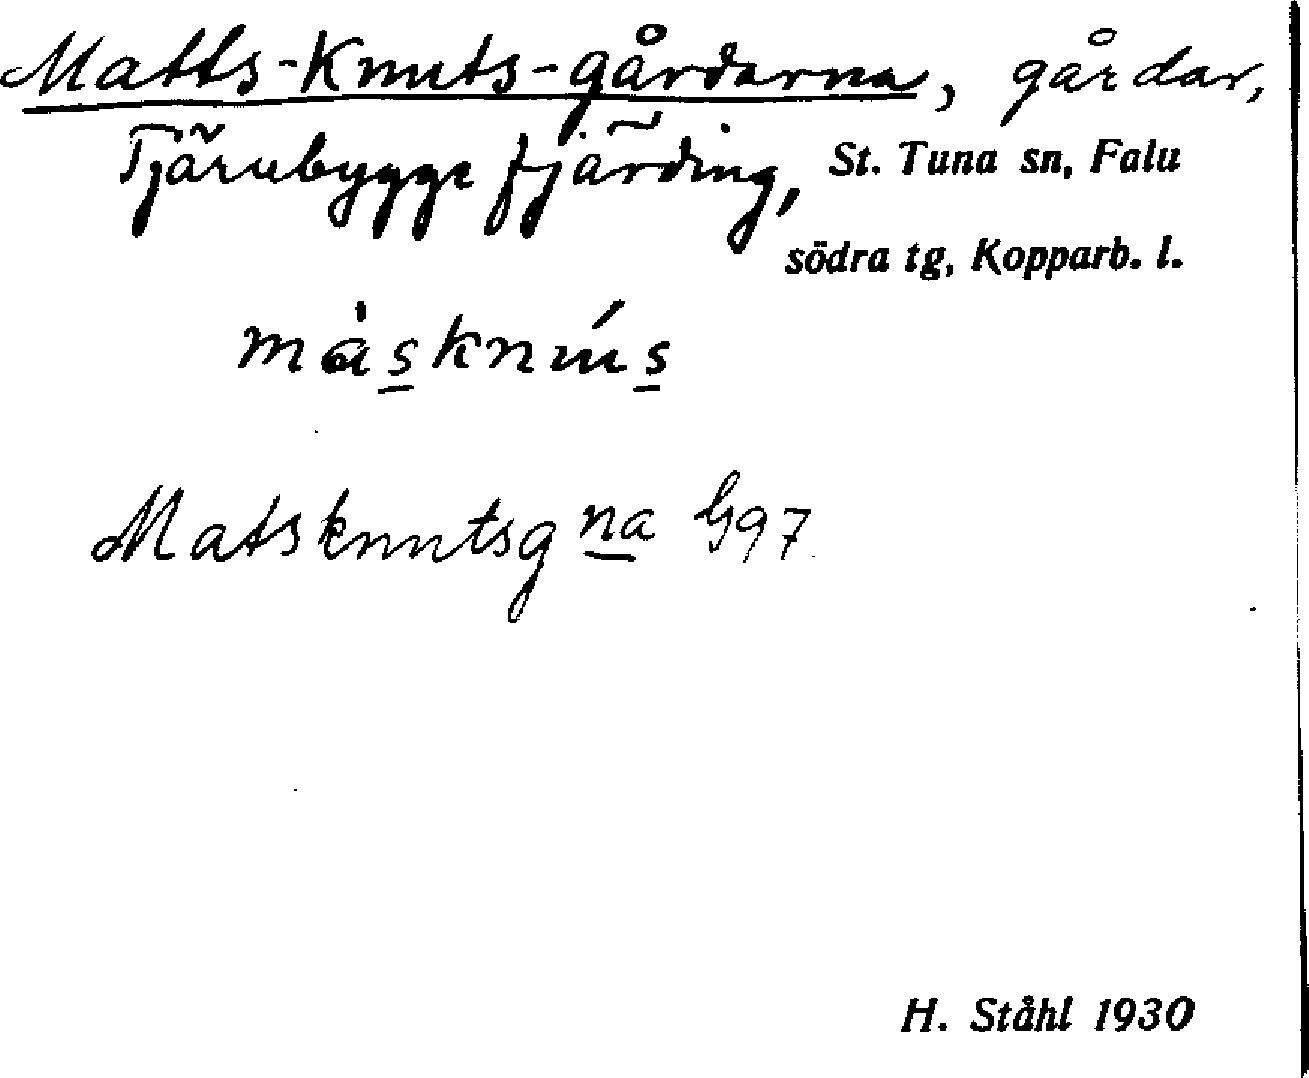 Matts-Knuts-gårdarna, gårdar,
Tjärnbygge fjärding, St. Tuna sn, Falu
södra tg, Kopparb. l.
Matsknutsgna G97
H. Ståhl 1930